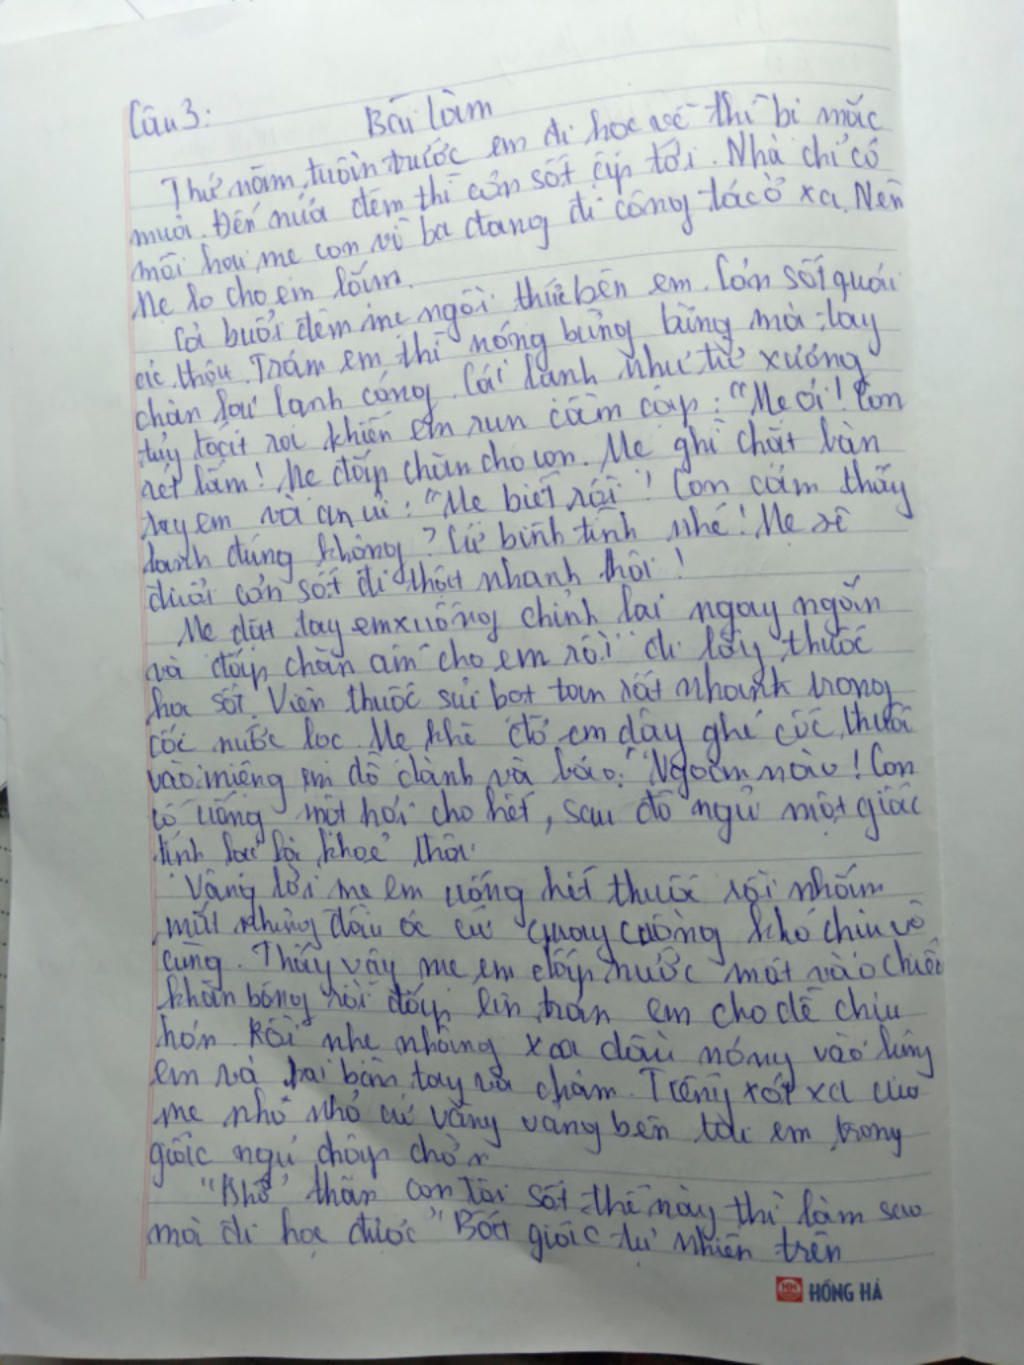 Câu 3:
Bài làm
Thứ năm, tuần trước em đi học về thì bị mắc
mưa. Đến nửa đêm thì cơn sốt ập tới. Nhà chỉ có
mỗi hai mẹ con vì ba đang đi công tác ở xa. Nên
Mẹ lo cho em lắm.
Cả buổi đêm mẹ ngồi thức bên em. Cơn sốt quái
ác thật. Trám em thì nóng bừng bừng mà tay
chân lại lạnh cóng. Cái lạnh như từ xương
tủy toát ra khiến em run cầm cập: "Mẹ ơi! Con
rét lắm! Mẹ đắp chăn cho con. Mẹ ghì chặt bàn
tay em và an ủi: "Mẹ biết rồi! Con cảm thấy
lạnh đúng không? Cứ bình tĩnh nhé! Mẹ sẽ
đuổi cơn sốt đi thật nhanh thôi!
Mẹ đặt tay em xuống chỉnh lại ngay ngắn
và đắp chăn ấm cho em rồi đi lấy thuốc
hạ sốt. Viên thuốc sủi bọt tan rất nhanh trong
cốc nước lọc. Mẹ khẽ đỡ em dậy ghé cốc thuốc
vào miệng em dỗ dành và bảo: "Ngoan nào! Con
cố uống một hơi cho hết, sau đó ngủ một giấc
tỉnh lại là khoẻ thôi.
Vâng lời mẹ em uống hết thuốc rồi nhắm
mắt nhưng đầu óc cứ quay cuồng khó chịu vô
cùng. Thấy vậy mẹ em đắp nước mát vào chiếc
khăn bông rồi đắp lên trán em cho dễ chịu
hơn. Rồi nhẹ nhàng xoa dầu nóng vào lưng
em và hai bàn tay và chân. Tiếng xót xa của
mẹ nho nhỏ cứ văng vẳng bên tai em trong
giấc ngủ chập chờn
"Khổ thân con tôi sốt thế này thì làm sao
mà đi học được" Bất giác tự nhiên trên
HỒNG HÀ